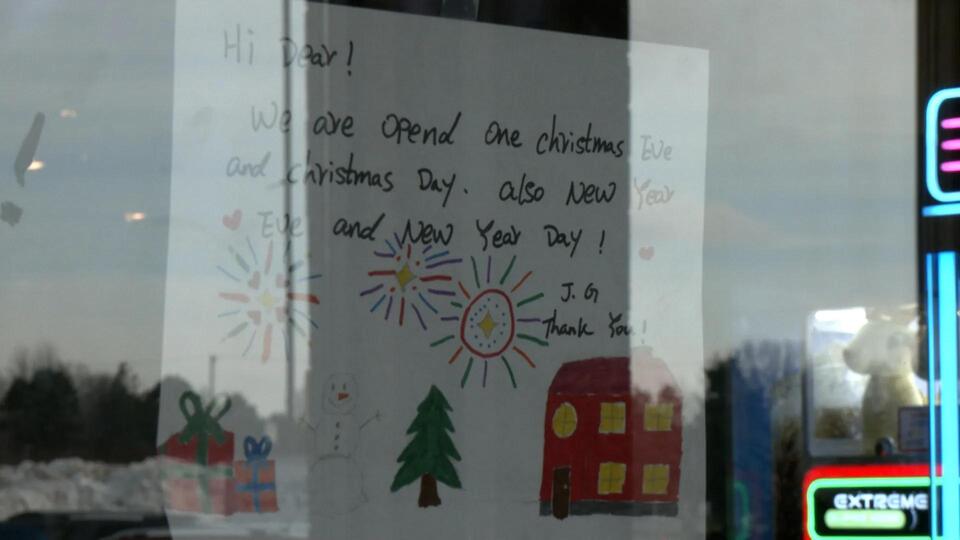 Hi Dear!
We are opend one christmas Eve
and christmas Day. also New Year
Eve and New Year Day!
J.G
Thank You!
EXTREME